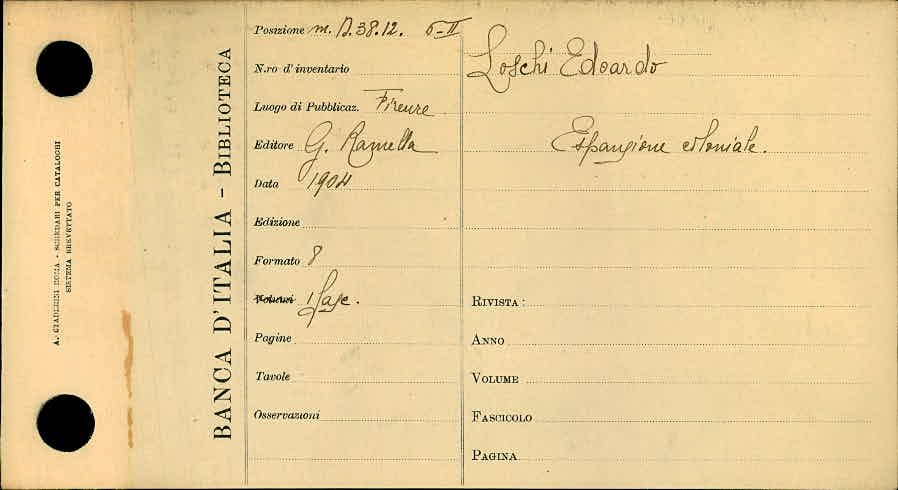 A. STADERINI ROMA - SCHEDARI PER CATALOGHI
SISTEMA BREVETTATO
BANCA D'ITALIA - BIBLIOTECA
Posizione m. D.38.12. 6-II
N.ro d'inventario
Luogo di Pubblicaz. Firenze
Editore G. Ramella
Data 1904
Edizione
Formato 8
Volumi 1 fasc.
Pagine
Tavole
Osservazioni
Loschi Edoardo
Espansione coloniale.
RIVISTA:
ANNO
VOLUME
FASCICOLO
PAGINA